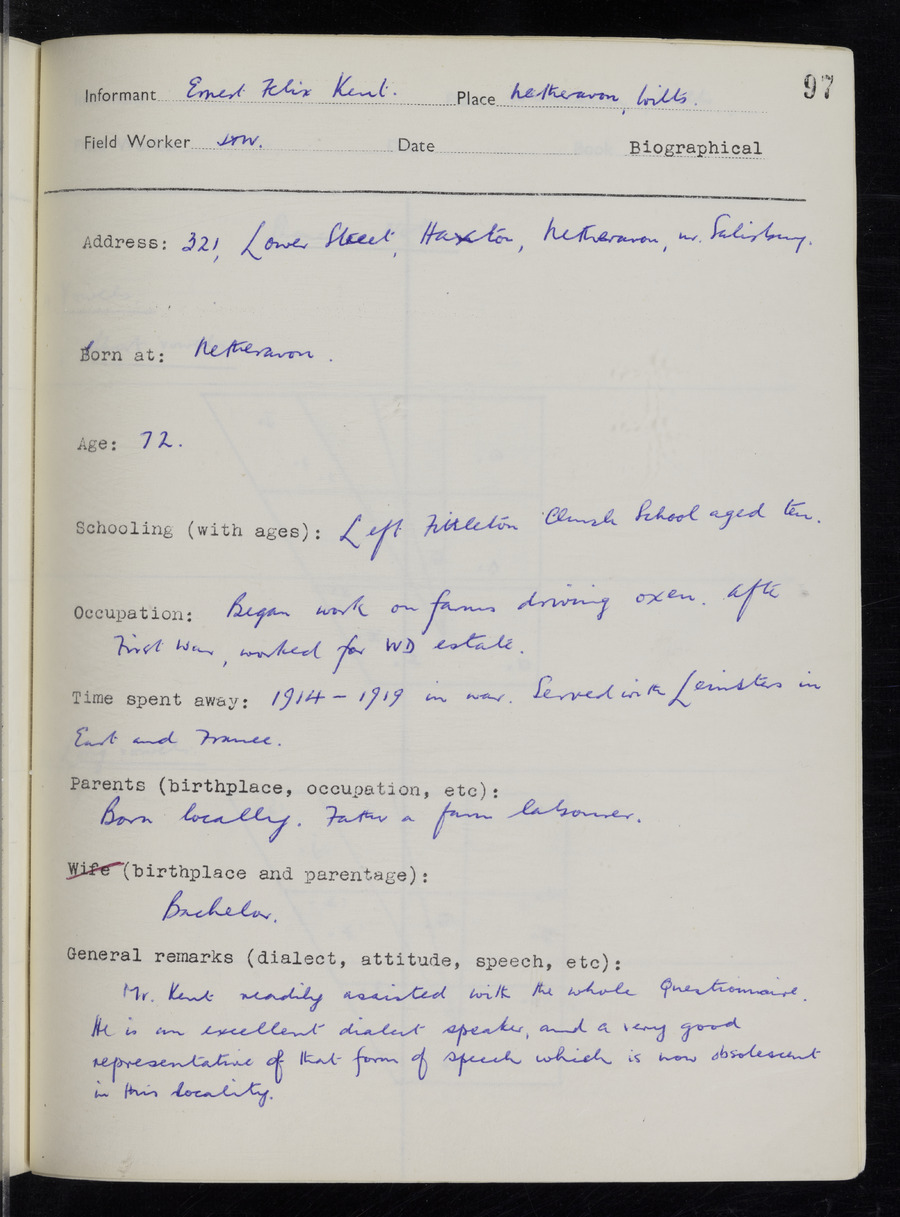 97
Informant Ernest Felix Kent. Place Netheravon, Wilts.
Field Worker Date Biographical
Address: 321, Lower Street, Haxton, Netheravon, nr. Salisbury.
Born at: Netheravon.
Age: 72.
Schooling (with ages): Left Fittleton Church School aged ten.
Occupation: Began work on farms driving oxen. After
First War, worked for WD estate.
Time spent away: 1914 - 1919 in war. Served with Leinsters in
East and France.
Parents (birthplace, occupation, etc):
Born locally. Father a farm labourer.
Wife (birthplace and parentage):
Bachelor.
General remarks (dialect, attitude, speech, etc):
Mr. Kent readily assisted with the whole Questionnaire.
He is an excellent dialect speaker, and a very good
representative of that form of speech which is now obsolescent
in this locality.